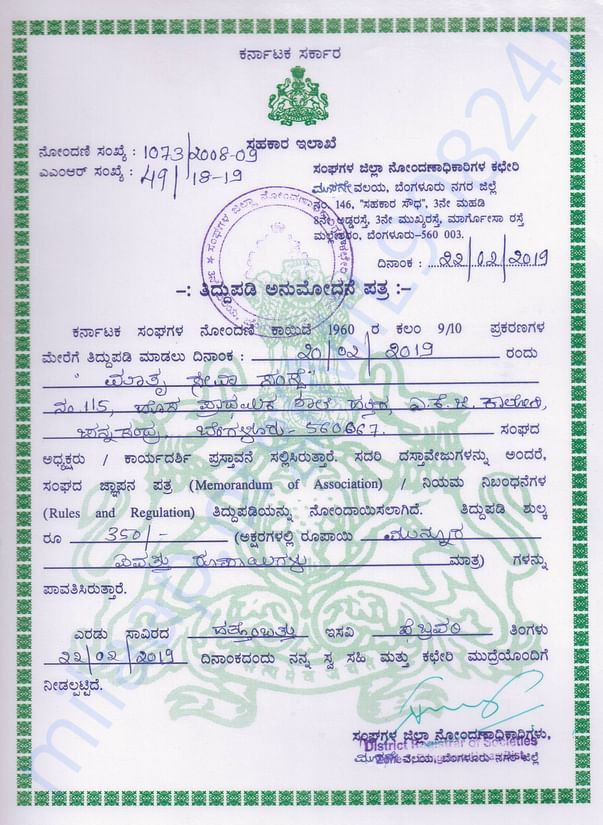 ಕರ್ನಾಟಕ ಸರ್ಕಾರ
ಸಹಕಾರ ಇಲಾಖೆ
ನೋಂದಣಿ ಸಂಖ್ಯೆ : 1073/2008-09
ಎಎಂಆರ್ ಸಂಖ್ಯೆ : 49/18-19
ಸಂಘಗಳ ಜಿಲ್ಲಾ ನೋಂದಣಾಧಿಕಾರಿಗಳ ಕಛೇರಿ
ವಲಯ, ಬೆಂಗಳೂರು ನಗರ ಜಿಲ್ಲೆ
ನಂ. 146, "ಸಹಕಾರ ಸೌಧ", 3ನೇ ಮಹಡಿ
8ನೇ ಅಡ್ಡರಸ್ತೆ, 3ನೇ ಮುಖ್ಯರಸ್ತೆ, ಮಾರ್ಗೋಸಾ ರಸ್ತೆ
ಮಲ್ಲೇಶ್ವರಂ, ಬೆಂಗಳೂರು-560 003.
ದಿನಾಂಕ : 22/02/2019
-: ತಿದ್ದುಪಡಿ ಅನುಮೋದನೆ ಪತ್ರ :-
ಕರ್ನಾಟಕ ಸಂಘಗಳ ನೋಂದಣಿ ಕಾಯಿದೆ 1960 ರ ಕಲಂ 9/10 ಪ್ರಕರಣಗಳ
ಮೇರೆಗೆ ತಿದ್ದುಪಡಿ ಮಾಡಲು ದಿನಾಂಕ : 20/02/2019 ರಂದು
ಮಾತೃ ಸೇವಾ ಸಂಸ್ಥೆ
ನಂ 115, ಶಾಲೆ ಹತ್ತಿರ, ಎ.ಕೆ.ಜಿ. ಕಾಲೋನಿ,
ಚನ್ನಸಂದ್ರ, ಬೆಂಗಳೂರು-560067. ಸಂಘದ
ಅಧ್ಯಕ್ಷರು / ಕಾರ್ಯದರ್ಶಿ ಪ್ರಸ್ತಾವನೆ ಸಲ್ಲಿಸಿರುತ್ತಾರೆ. ಸದರಿ ದಸ್ತಾವೇಜುಗಳನ್ನು ಅಂದರೆ,
ಸಂಘದ ಜ್ಞಾಪನ ಪತ್ರ (Memorandum of Association) / ನಿಯಮ ನಿಬಂಧನೆಗಳ
(Rules and Regulation) ತಿದ್ದುಪಡಿಯನ್ನು ನೋಂದಾಯಿಸಲಾಗಿದೆ. ತಿದ್ದುಪಡಿ ಶುಲ್ಕ
ರೂ 350/- (ಅಕ್ಷರಗಳಲ್ಲಿ ರೂಪಾಯಿ ಮುನ್ನೂರ
ಐವತ್ತು ರೂಪಾಯಿಗಳು ಮಾತ್ರ) ಗಳನ್ನು
ಪಾವತಿಸಿರುತ್ತಾರೆ.
ಎರಡು ಸಾವಿರದ ಹತ್ತೊಂಬತ್ತು ಇಸವಿ ಫೆಬ್ರವರಿ ತಿಂಗಳು
22/02/2019 ದಿನಾಂಕದಂದು ನನ್ನ ಸ್ವ ಸಹಿ ಮತ್ತು ಕಛೇರಿ ಮುದ್ರೆಯೊಂದಿಗೆ
ನೀಡಲ್ಪಟ್ಟಿದೆ.
ಸಂಘಗಳ ಜಿಲ್ಲಾ ನೋಂದಣಾಧಿಕಾರಿಗಳು,
District Registrar of Societies
ವಲಯ, ಬೆಂಗಳೂರು ನಗರ ಜಿಲ್ಲೆ